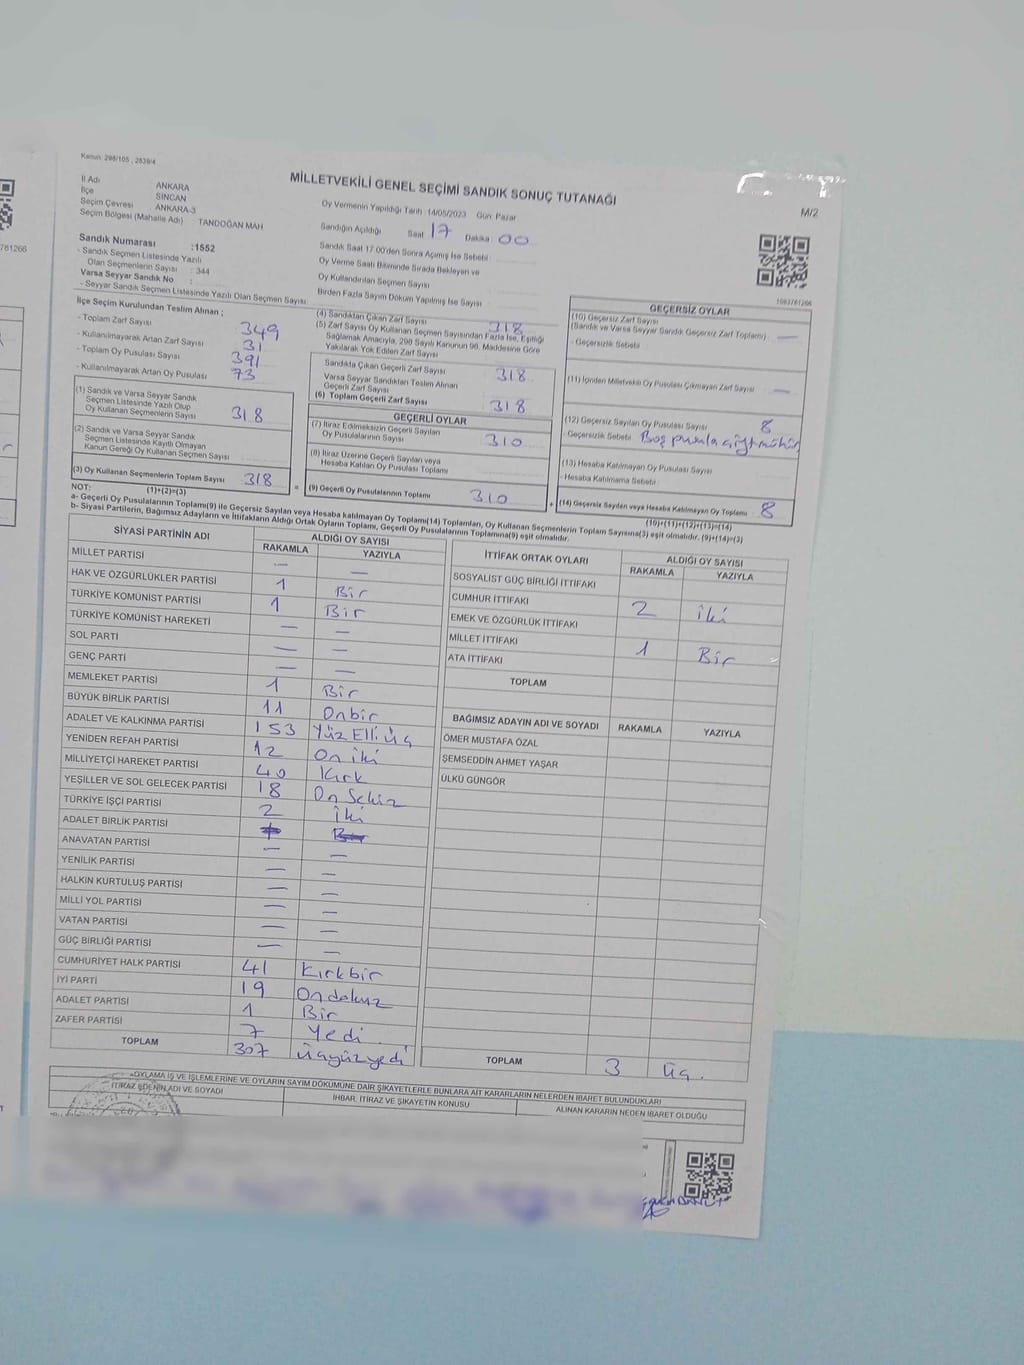 Kanun: 298/105 , 2839/4
MİLLETVEKİLİ GENEL SEÇİMİ SANDIK SONUÇ TUTANAĞI
M/2
İl Adı ANKARA
İlçe SİNCAN
Seçim Çevresi ANKARA-3
Seçim Bölgesi (Mahalle Adı) : TANDOĞAN MAH
Sandık Numarası :1552
- Sandık Seçmen Listesinde Yazılı
Olan Seçmenlerin Sayısı : 344
Varsa Seyyar Sandık No :
- Seyyar Sandık Seçmen Listesinde Yazılı Olan Seçmen Sayısı
Oy Vermenin Yapıldığı Tarih :14/05/2023 Gün: Pazar
Sandığın Açıldığı Saat 17 Dakika : 00
Sandık Saat 17.00'den Sonra Açılmış İse Sebebi :
Oy Verme Saati Bitiminde Sırada Bekleyen ve
Oy Kullandırılan Seçmen Sayısı
Birden Fazla Sayım Döküm Yapılmış İse Sayısı :
1083761266
761266
İlçe Seçim Kurulundan Teslim Alınan ;
- Toplam Zarf Sayısı 349
- Kullanılmayarak Artan Zarf Sayısı 31
- Toplam Oy Pusulası Sayısı 391
- Kullanılmayarak Artan Oy Pusulası 73
(1) Sandık ve Varsa Seyyar Sandık
Seçmen Listesinde Yazılı Olup
Oy Kullanan Seçmenlerin Sayısı 318
(2) Sandık ve Varsa Seyyar Sandık
Seçmen Listesinde Kayıtlı Olmayan
Kanun Gereği Oy Kullanan Seçmen Sayısı
(3) Oy Kullanan Seçmenlerin Toplam Sayısı 318
(1)+(2)=(3)
(4) Sandıktan Çıkan Zarf Sayısı 318
(5) Zarf Sayısı Oy Kullanan Seçmen Sayısından Fazla İse, Eşitliği
Sağlamak Amacıyla, 298 Sayılı Kanunun 98. Maddesine Göre
Yakılarak Yok Edilen Zarf Sayısı
Sandıkta Çıkan Geçerli Zarf Sayısı 318
Varsa Seyyar Sandıktan Teslim Alınan
Geçerli Zarf Sayısı
(6) Toplam Geçerli Zarf Sayısı 318
GEÇERLİ OYLAR
(7) İtiraz Edilmeksizin Geçerli Sayılan
Oy Pusulalarının Sayısı 310
(8) İtiraz Üzerine Geçerli Sayılan veya
Hesaba Katılan Oy Pusulası Toplamı
= (9) Geçerli Oy Pusulalarının Toplamı 310
GEÇERSİZ OYLAR
(10) Geçersiz Zarf Sayısı
(Sandık ve Varsa Seyyar Sandık Geçersiz Zarf Toplamı) —
- Geçersizlik Sebebi
(11) İçinden Milletvekili Oy Pusulası Çıkmayan Zarf Sayısı —
(12) Geçersiz Sayılan Oy Pusulası Sayısı 8
- Geçersizlik Sebebi : Boş pusula çift mühür
(13) Hesaba Katılmayan Oy Pusulası Sayısı
- Hesaba Katılmama Sebebi :
+ (14) Geçersiz Sayılan veya Hesaba Katılmayan Oy Toplamı 8
(10)+(11)+(12)+(13)=(14)
NOT:
a- Geçerli Oy Pusulalarının Toplamı(9) ile Geçersiz Sayılan veya Hesaba Katılmayan Oy Toplamı(14) Toplamları, Oy Kullanan Seçmenlerin Toplam Sayısına(3) eşit olmalıdır. (9)+(14)=(3)
b- Siyasi Partilerin, Bağımsız Adayların ve İttifakların Aldığı Ortak Oyların Toplamı, Geçerli Oy Pusulalarının Toplamına(9) eşit olmalıdır.
SİYASİ PARTİNİN ADI ALDIĞI OY SAYISI
RAKAMLA YAZIYLA
MİLLET PARTİSİ — —
HAK VE ÖZGÜRLÜKLER PARTİSİ 1 Bir
TÜRKİYE KOMÜNİST PARTİSİ 1 Bir
TÜRKİYE KOMÜNİST HAREKETİ — —
SOL PARTİ — —
GENÇ PARTİ — —
MEMLEKET PARTİSİ 1 Bir
BÜYÜK BİRLİK PARTİSİ 11 Onbir
ADALET VE KALKINMA PARTİSİ 153 Yüz Elli üç
YENİDEN REFAH PARTİSİ 12 On iki
MİLLİYETÇİ HAREKET PARTİSİ 40 Kırk
YEŞİLLER VE SOL GELECEK PARTİSİ 18 On Sekiz
TÜRKİYE İŞÇİ PARTİSİ 2 İki
ADALET BİRLİK PARTİSİ
ANAVATAN PARTİSİ — —
YENİLİK PARTİSİ — —
HALKIN KURTULUŞ PARTİSİ — —
MİLLİ YOL PARTİSİ — —
VATAN PARTİSİ — —
GÜÇ BİRLİĞİ PARTİSİ — —
CUMHURİYET HALK PARTİSİ 41 Kırkbir
İYİ PARTİ 19 Ondokuz
ADALET PARTİSİ 1 Bir
ZAFER PARTİSİ 7 Yedi
TOPLAM 307 üçyüzyedi
İTTİFAK ORTAK OYLARI ALDIĞI OY SAYISI
RAKAMLA YAZIYLA
SOSYALİST GÜÇ BİRLİĞİ İTTİFAKI
CUMHUR İTTİFAKI 2 iki
EMEK VE ÖZGÜRLÜK İTTİFAKI
MİLLET İTTİFAKI 1 Bir
ATA İTTİFAKI
TOPLAM
BAĞIMSIZ ADAYIN ADI VE SOYADI RAKAMLA YAZIYLA
ÖMER MUSTAFA ÖZAL
ŞEMSEDDİN AHMET YAŞAR
ÜLKÜ GÜNGÖR
TOPLAM 3 üç.
OYLAMA İŞ VE İŞLEMLERİNE VE OYLARIN SAYIM DÖKÜMÜNE DAİR ŞİKAYETLERLE BUNLARA AİT KARARLARIN NELERDEN İBARET BULUNDUKLARI
İTİRAZ EDENİN ADI VE SOYADI
İHBAR, İTİRAZ VE ŞİKAYETİN KONUSU
ALINAN KARARIN NEDEN İBARET OLDUĞU